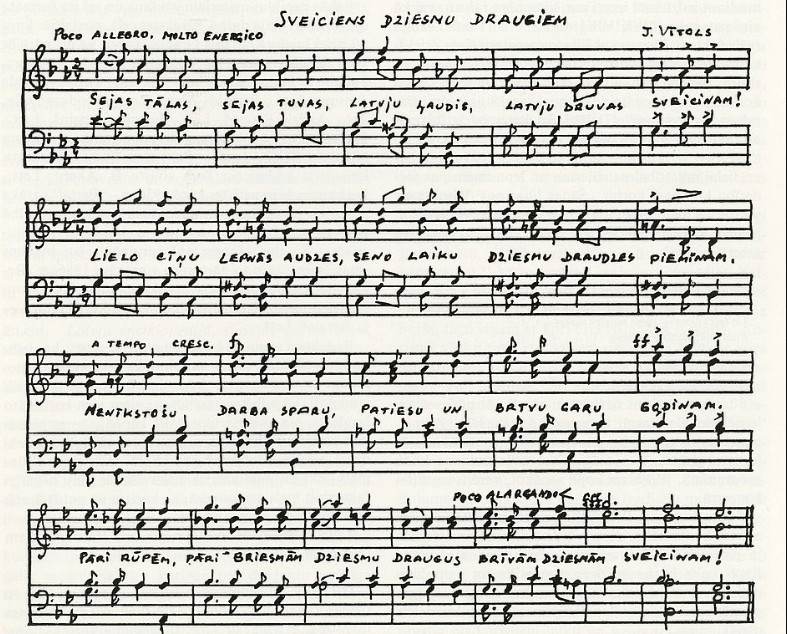 SVEICIENS DZIESMU DRAUGIEM
POCO ALLEGRO, MOLTO ENERGICO
J. VĪTOLS
SEJAS TĀLAS, SEJAS TUVAS, LATVJU ĻAUDIS, LATVJU DRUVAS SVEICINAM!
LIELO CĪŅU LEPNĀS AUDZES, SENO LAIKU DZIESMU DRAUDZES PIEMINAM.
A TEMPO CRESC. f ff
NENĪKSTOŠU DARBA SPARU, PATIESU UN BRĪVU GARU GODINAM.
POCO ALARGANDO < fff
PĀRI RŪPĒM, PĀRI BRIESMĀM DZIESMU DRAUGUS BRĪVĀM DZIESMĀM SVEICINAM!